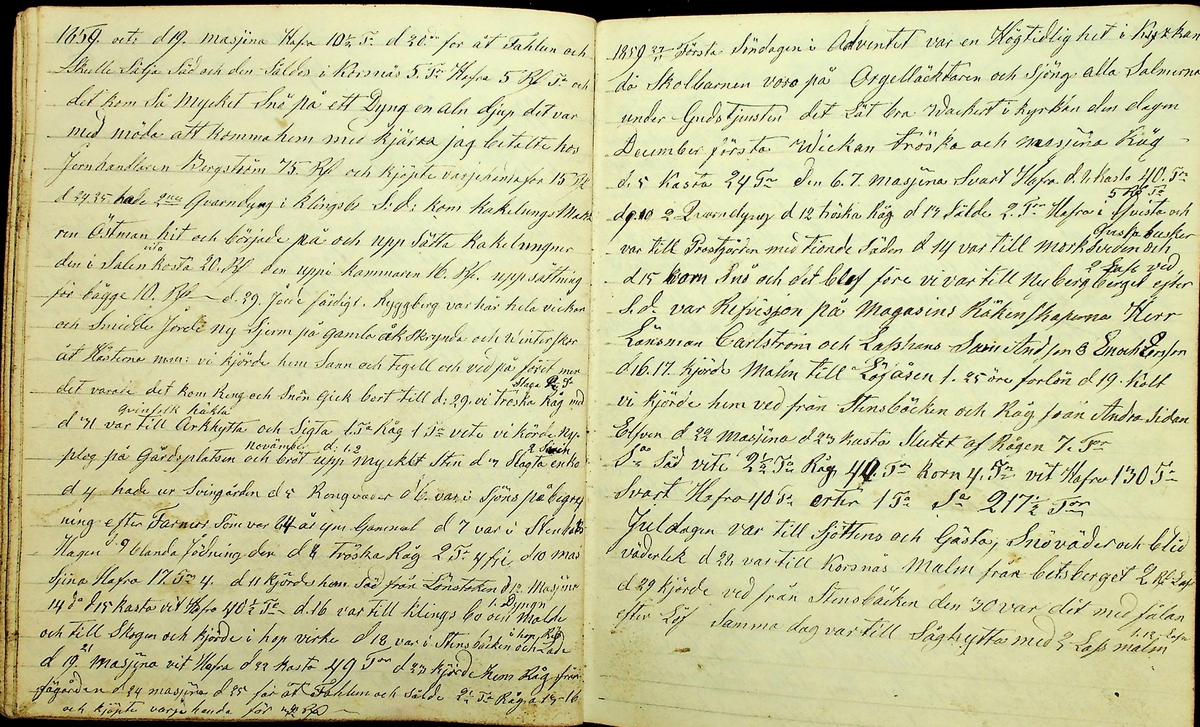 1859. oct: d 19. masjina Hafra 10½ Tr d 20 for åt Fahlun och
Skulle Sälja Säd och den Såldes i Korsnäs 5 Tr Hafra 5 Rd Tr och
det kom Så mycket Snö på ett Dyng en aln djup det var
med möda att komma hem med kjärra jag betalte hos
Jernhandlaren Bergström 75 Rd och kjöpte varjehanda for 15 Rd
d 24 25 hade Qvarndyng i Klingsbo S: d: kom Kakelungsmaka
ren Östman hit och började på och upp Sätta Kakelungner
den i Salen vita kosta 20. Rd den uppi kammaren 16 Rd. uppsättning
för bägge 10. Rd d. 29. Jode färdigt. Ryggberg var här hela vickan
och Smidde Jorde ny Sjerm på gamla åkskrynda och vinterskor
åt Hästerna mm: vi kjörde hem Saan och Tegell och ved på föret men
det varade det kom Reng och Snön Gick bort till d: 29. vi tröska Råg med
qvinfolk hakta
d 31 var till Arkhytta och Sigta 1 Tr Råg 1 Tr vete vi körde
plog på Gårdsplatsen och bröt upp mycket Sten d 3 Slagta en ko
november d. 1.2
d 4 hade ur Svingården d 5 Rengvader d 6. var i Sjöns på begraf
ning efter Farmor Som var 64 år gm Gammal d 7 var i
Hagen d 9 blanda födning den d 8 tröska Råg 2 Tr 4 fji d 10 mas
Sjina Hafra 17 Tr 4. d 11 kjörde hem Säd från d 12 Masjina
14 d 15 kasta vit Hafra 40½ Tr d. 16 var till Klingsbo och Malde
och till Skogen och kjörde i hop virke d 18 var i Stensbäcken och Lade
d 19 21 masjina vit Hafra d 22 kasta 49 Tr d 23 kjörde hem Råg från
d 24 masjina d 25 for åt Fahlun och Sålde 2½ Tr Råg a 15-16
och kjöpte varje handa för Rd
1859 27/11 Första Söndagen i Adventet var en Högtidlighet i Kyrkan
då Skolbarnen voro på Orgelläktaren och Sjöng alla Salmerna
under Gudstjensten det Lät bra Wackert i kyrkan den dagen
December första Wickan tröska och masjina Råg
d: 5 Kasta 24 Tr den 6. 7. masjina Svart Hafra d. 8 kasta 40 Tr
5 Rd Tr
d 9 10 2 Qvarndyng d 12 tröska Råg d 13 Sålde 2. Tr Hafra i Qvista och
Gusta busker
var till Prostgården med tionde Säden d 14 var till morksveden och
d 15 kom Snö och det blef före vi var till Nyberg berget efter
2 Lass ved
S. d. var Refvisjon på Magasins Räkenskaperna Herr
Länsman Carlström och Lasshans Sven And son & Enoch Persson
d 16. 17. kjörde Malm till Löfåsen 1. 25 öre forlön d 19. hölt
vi kjörde hem ved från Stensbäcken och Råg från Andra Sidan
Elfven d 22 masjina d 23 kasta Slutet af Rågen 7. Tr
Sa Säd vete 2½ Tr Råg 40. Tr Korn 4. Tr vit Hafra 130 Tr
Svart Hafra 40 Tr erter 1 Tr Sa 217½ Tr
Juldagen var till Sjöttens och Gästa, Snöväder och blid
väderlek d 28 var till Korsnäs Malm från betsberget 2 Rd Lass
d 29 kjörde ved från Stensbäcken den 30 var dit med fålan
efter Löf Samma dag var till Säghytta med 2 Lass malm